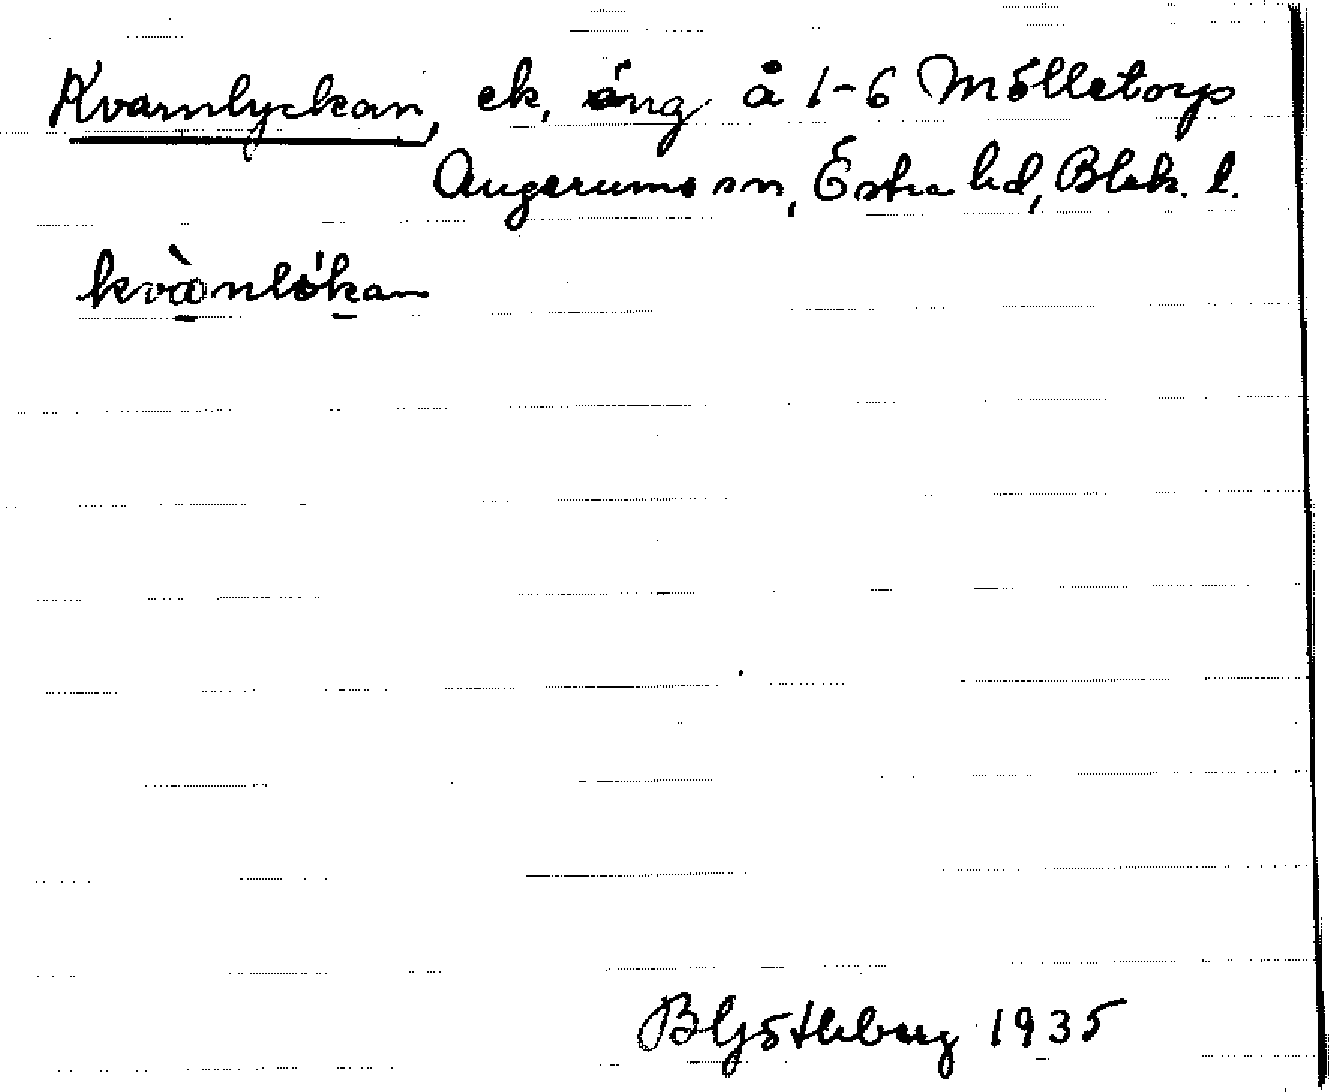 Kvarnlyckan, ek, äng å 1-6 Mölletorp
Augerums sn, Östra hd, Blek. l.
kvànlókan
B Götlberg 1935